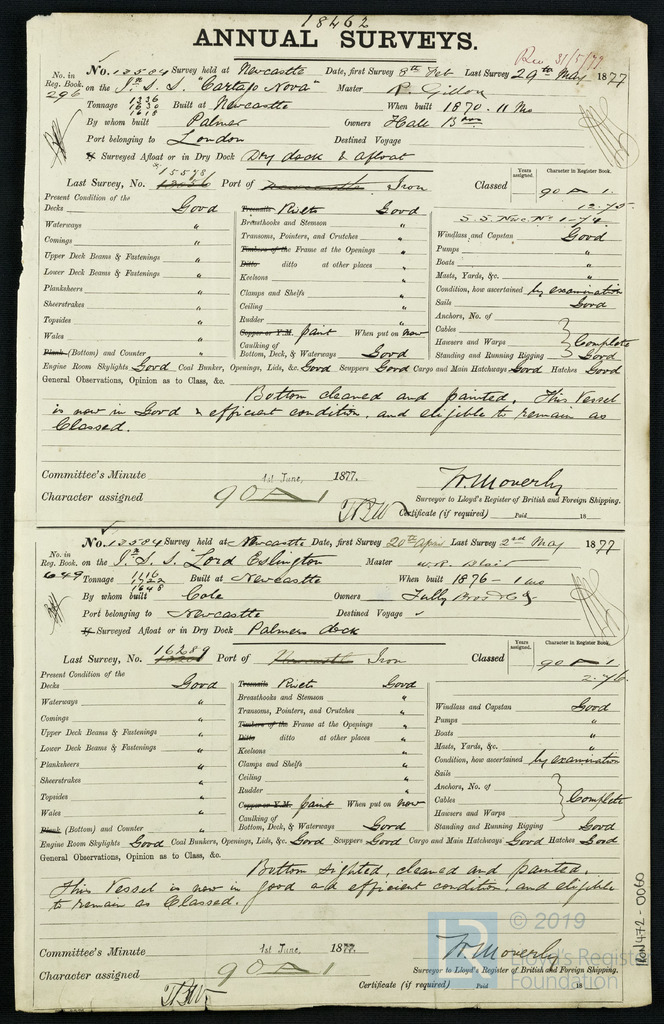 18462
ANNUAL SURVEYS.
Rec 31/5/77
No. 12504 Survey held at Newcastle Date, first Survey 8th Feb Last Survey 29th May 1877
No. in
Reg. Book. on the "Cartago Nova" Master R. Gillon
296
Tonnage 1236 1630 1618 Built at Newcastle When built 1870. 11 Mo
By whom built Palmer Owners Hall Bros
Port belonging to London Destined Voyage
If Surveyed Afloat or in Dry Dock Dry dock & afloat
15578
Last Survey, No. Port of Newcastle Iron Classed Years assigned. Character in Register Book.
90 A 1
12.75
Present Condition of the
Decks Good Treenails Rivets Good S.S. Nwc. No. 1-74
Waterways " Breasthooks and Stemson " Windlass and Capstan Good
Comings " Transoms, Pointers, and Crutches " Pumps "
Upper Deck Beams & Fastenings " Timbers of the Frame at the Openings " Boats "
Lower Deck Beams & Fastenings " Ditto ditto at other places " Masts, Yards, &c. "
Planksheers " Keelsons " Condition, how ascertained by examination
Sheerstrakes " Clamps and Shelfs " Sails Good
Topsides " Ceiling " Anchors, No. of
Wales " Rudder " Cables
Plank (Bottom) and Counter " Copper or Y.M. paint When put on now Hawsers and Warps Complete
Caulking of Bottom, Deck, & Waterways Good Standing and Running Rigging Good
Engine Room Skylights Good Coal Bunker, Openings, Lids, &c. Good Scuppers Good Cargo and Main Hatchways Good Hatches Good
General Observations, Opinion as to Class, &c.
Bottom cleaned and painted. This Vessel
is now in Good & efficient condition, and eligible to remain as
Classed.
Committee's Minute 1st June, 1877.
Character assigned 90 A 1
W. Moverly
Surveyor to Lloyd's Register of British and Foreign Shipping.
Certificate (if required) Paid 18
No. 12504 Survey held at Newcastle Date, first Survey 20th April Last Survey 2nd May 1877
No. in
Reg. Book. on the "Lord Eslington" Master W. R. Blair
649
Tonnage 1648 Built at Newcastle When built 1876 - 1 mo
By whom built Cole Owners Tully Bros & Co
Port belonging to Newcastle Destined Voyage
If Surveyed Afloat or in Dry Dock Palmers dock
16289
Last Survey, No. Port of Newcastle Iron Classed Years assigned. Character in Register Book.
90 A 1
2.76
Present Condition of the
Decks Good Treenails Rivets Good
Waterways " Breasthooks and Stemson " Windlass and Capstan Good
Comings " Transoms, Pointers, and Crutches " Pumps "
Upper Deck Beams & Fastenings " Timbers of the Frame at the Openings " Boats "
Lower Deck Beams & Fastenings " Ditto ditto at other places " Masts, Yards, &c. "
Planksheers " Keelsons " Condition, how ascertained by examination
Sheerstrakes " Clamps and Shelfs " Sails
Topsides " Ceiling " Anchors, No. of
Wales " Rudder " Cables Complete
Plank (Bottom) and Counter " Copper or Y.M. paint When put on now Hawsers and Warps
Caulking of Bottom, Deck, & Waterways Good Standing and Running Rigging Good
Engine Room Skylights Good Coal Bunkers, Openings, Lids, &c. Good Scuppers Good Cargo and Main Hatchways Good Hatches Good
General Observations, Opinion as to Class, &c.
Bottom sighted, cleaned and painted.
This Vessel is now in good and efficient condition, and eligible
to remain as Classed.
Committee's Minute 1st June, 1877.
Character assigned 90 A 1
W. Moverly
Surveyor to Lloyd's Register of British and Foreign Shipping.
Certificate (if required) Paid 18
© 2019
Lloyd's Register
Foundation
IRON472-0060